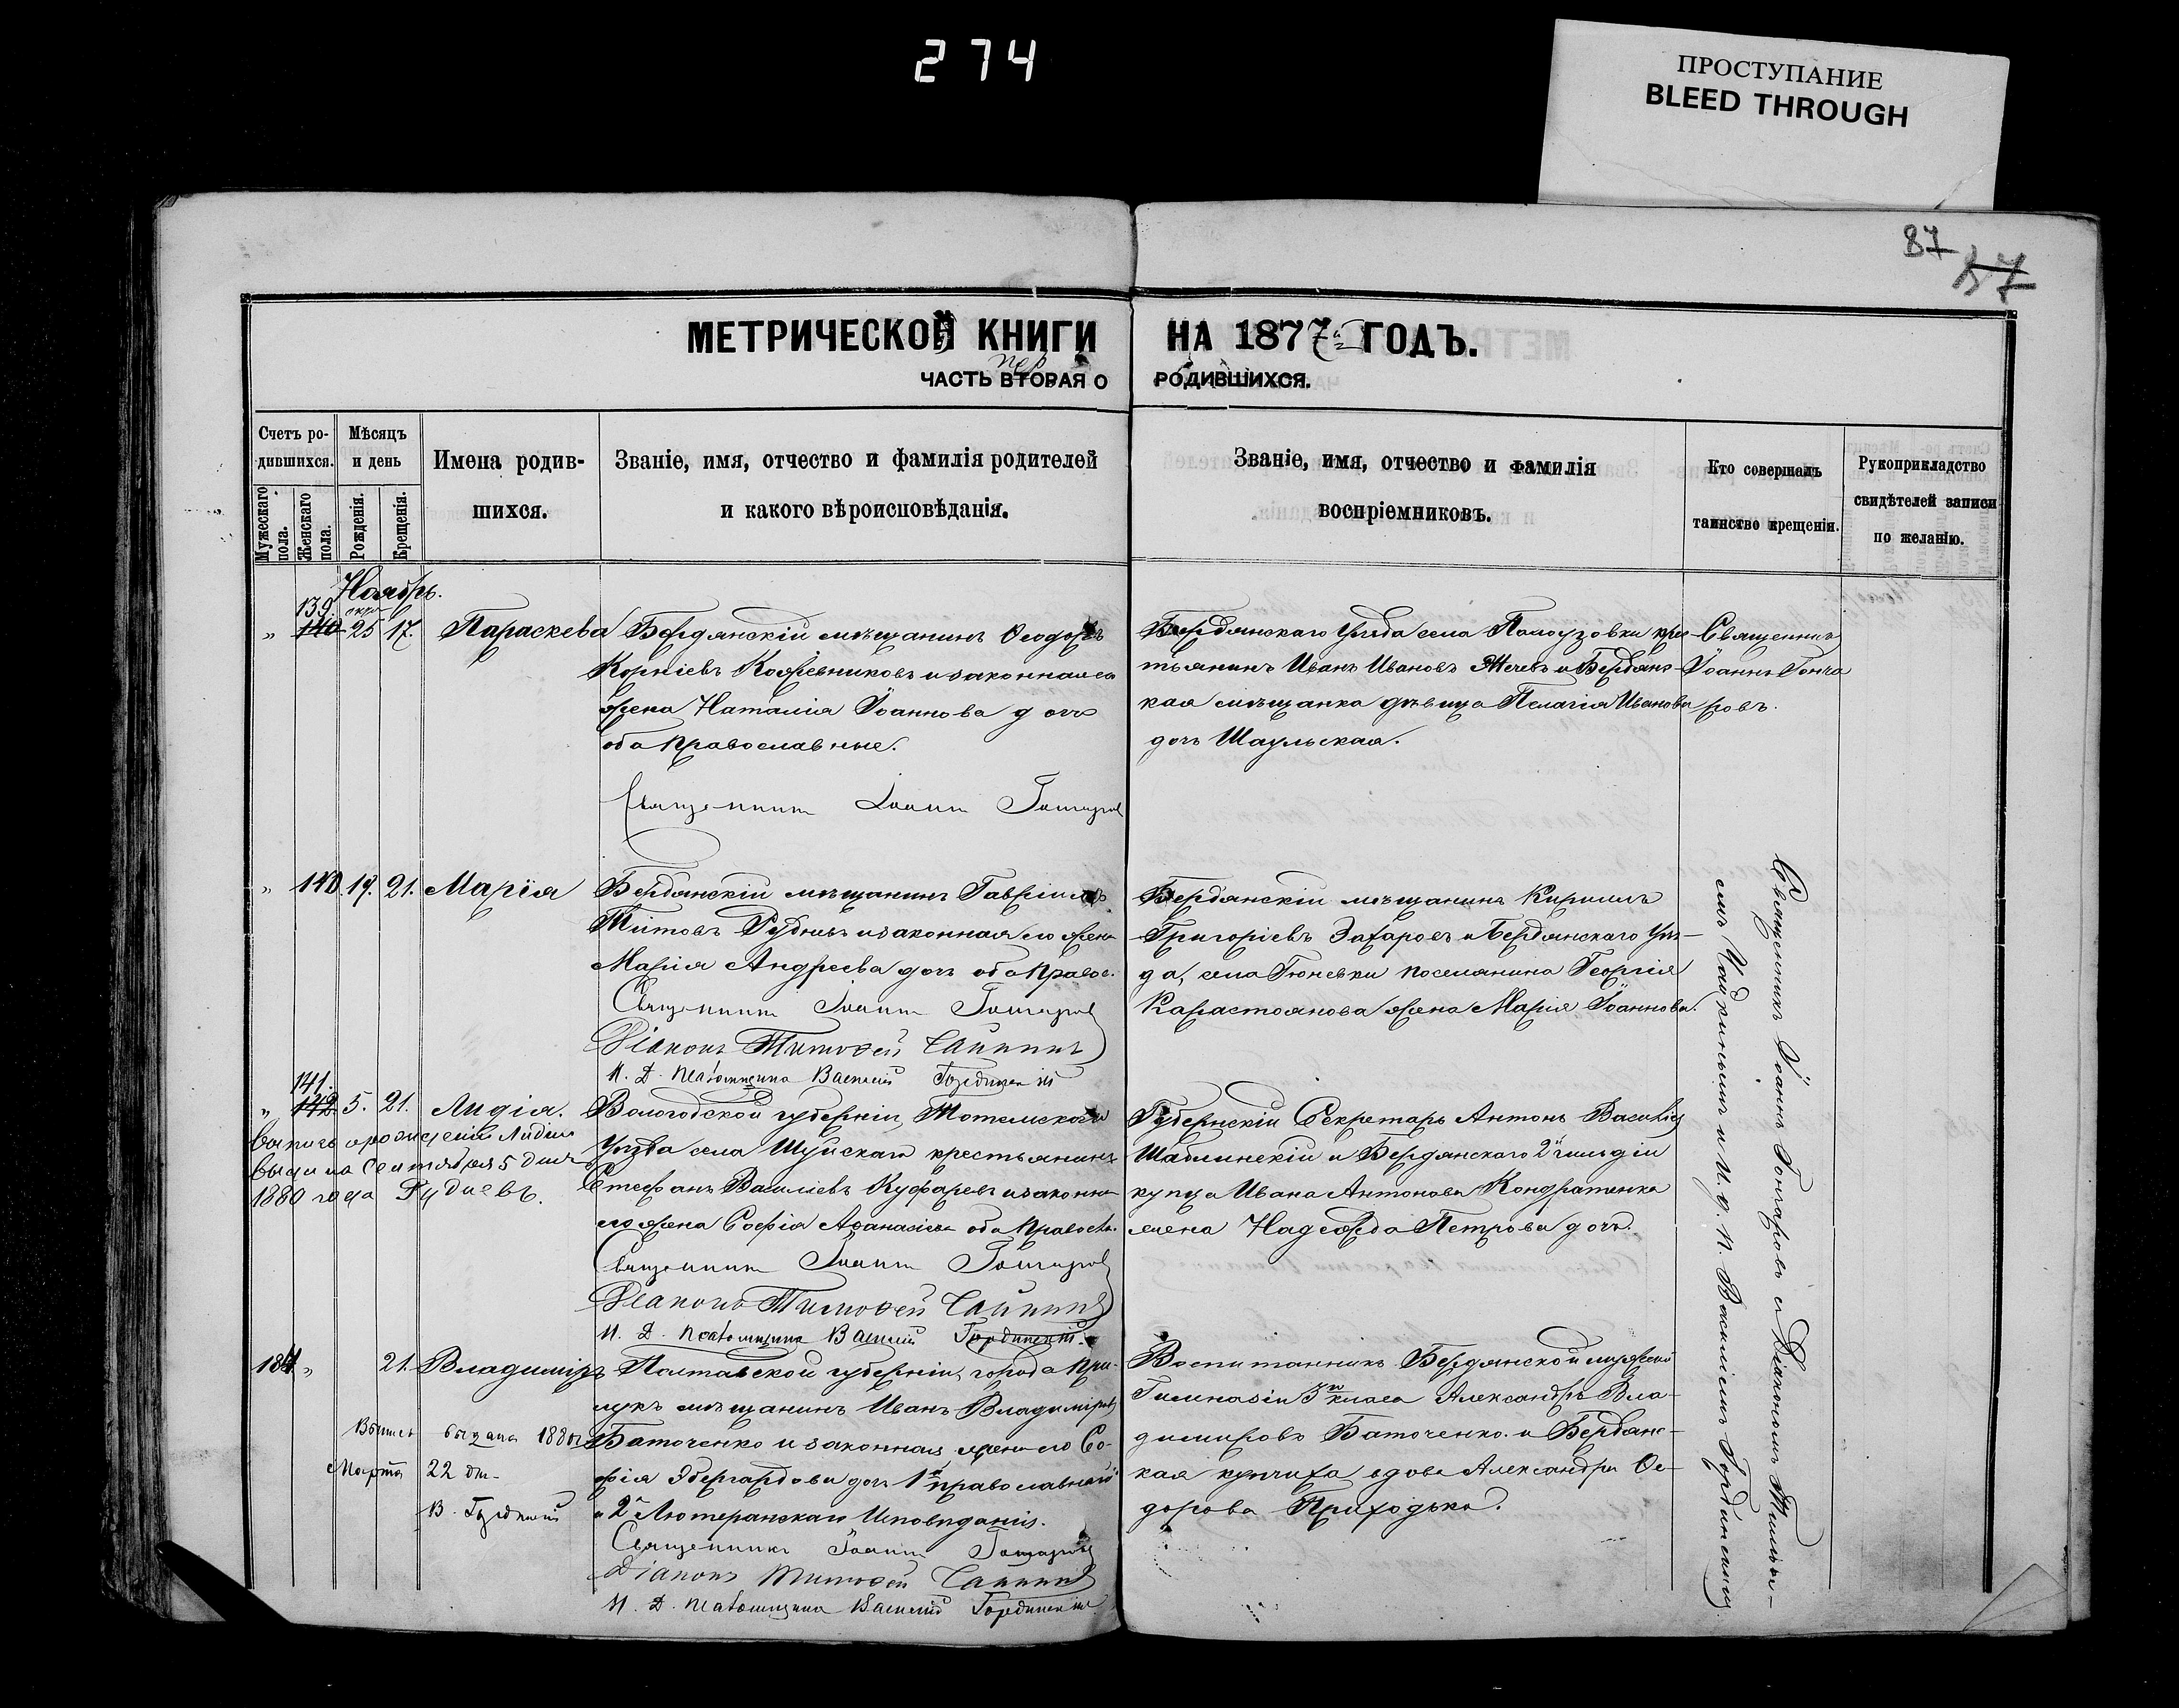 274
ПРОСТУПАНИЕ
BLEED THROUGH
87
87
МЕТРИЧЕСКОЙ КНИГИ НА 1877й ГОДЪ.
пер
ЧАСТЬ ВТОРАЯ О РОДИВШИХСЯ.
Счетъ родившихся.
Мужескаго пола.
Женскаго пола.
Мѣсяцъ и день
Рожденія.
Крещенія.
Имена родив-
шихся.
Званіе, имя, отчество и фамилія родителей
и какого вѣроисповѣданія.
Званіе, имя, отчество и фамилія
воспріемниковъ.
Кто совершалъ
таинство крещенія.
Рукоприкладство
свидѣтелей записи
по желанію.
Ноябрь.
139.
" 140 25 17. Параскева
Бердянскій мѣщанинъ Ѳеодоръ
Корніевъ Кожевниковъ и законная его
жена Наталія Іоаннова дочь
оба православные.
Священникъ Іоаннъ Гончаровъ
Бердянскаго Уѣзда села крес-
тьянинъ Иванъ Ивановъ и Бердянс-
кая мѣщанка дѣвица Пелагія Иванова
дочь Шаульская.
Священникъ
Іоаннъ Гонча
ровъ.
" 140. 19. 21. Марія
Бердянскій мѣщанинъ Гавріилъ
Титовъ и законная его жена
Марія Андреева дочь оба правос.
Священникъ Іоаннъ Гончаровъ
Діаконъ Тимоѳей
И. Д. псаломщика Василій Гординскій
Бердянскій мѣщанинъ Кириллъ
Григоріевъ Захаровъ и Бердянскаго Уѣз-
да, села Гюневки поселянина Георгія
Карастоянова жена Марія Іоаннова.
141.
" 142 5. 21. Лидія.
Выпись о рожденіи Лидіи
выдана Сентября 5 дня
1880 года
Вологодской губерніи, Тотемскаго
Уѣзда села Шуйскаго крестьянинъ
Стефанъ Василіевъ и законная
его жена Софія Аѳанасіева оба правосл.
Священникъ Іоаннъ Гончаровъ
Діаконъ Тимоѳей
И. Д. псаломщика Василій Гординскій.
Губернскій Секретарь Антонъ Василіев
Шаблинскій и Бердянскаго 2й гильдіи
купца Ивана Антонова Кондратенка
жена Надежда Петрова дочь.
184 " 21. Владиміръ
Выпись выдана 1880
Марта 22 дня
В. Гординскій
Полтавской губерніи, города При-
лукъ мѣщанинъ Иванъ Владиміровъ
Баточенко и законная жена его Со-
фія Эбергардова дочь 1й православный
и 2я Лютеранскаго Исповѣданія.
Священникъ Іоаннъ Гончаровъ
Діаконъ Тимоѳей
И. Д. псаломщика Василій Гординскій
Воспитанникъ Бердянской мужской
Гимназіи 3го класса Александръ Вла-
димировъ Баточенко и Бердянс-
кая купчиха вдова Александра Ѳе-
дорова Приходько.
Священникъ Іоаннъ Гончаровъ съ Діакономъ Тимоѳе-
емъ и И. д. п. Василіемъ Гординскимъ